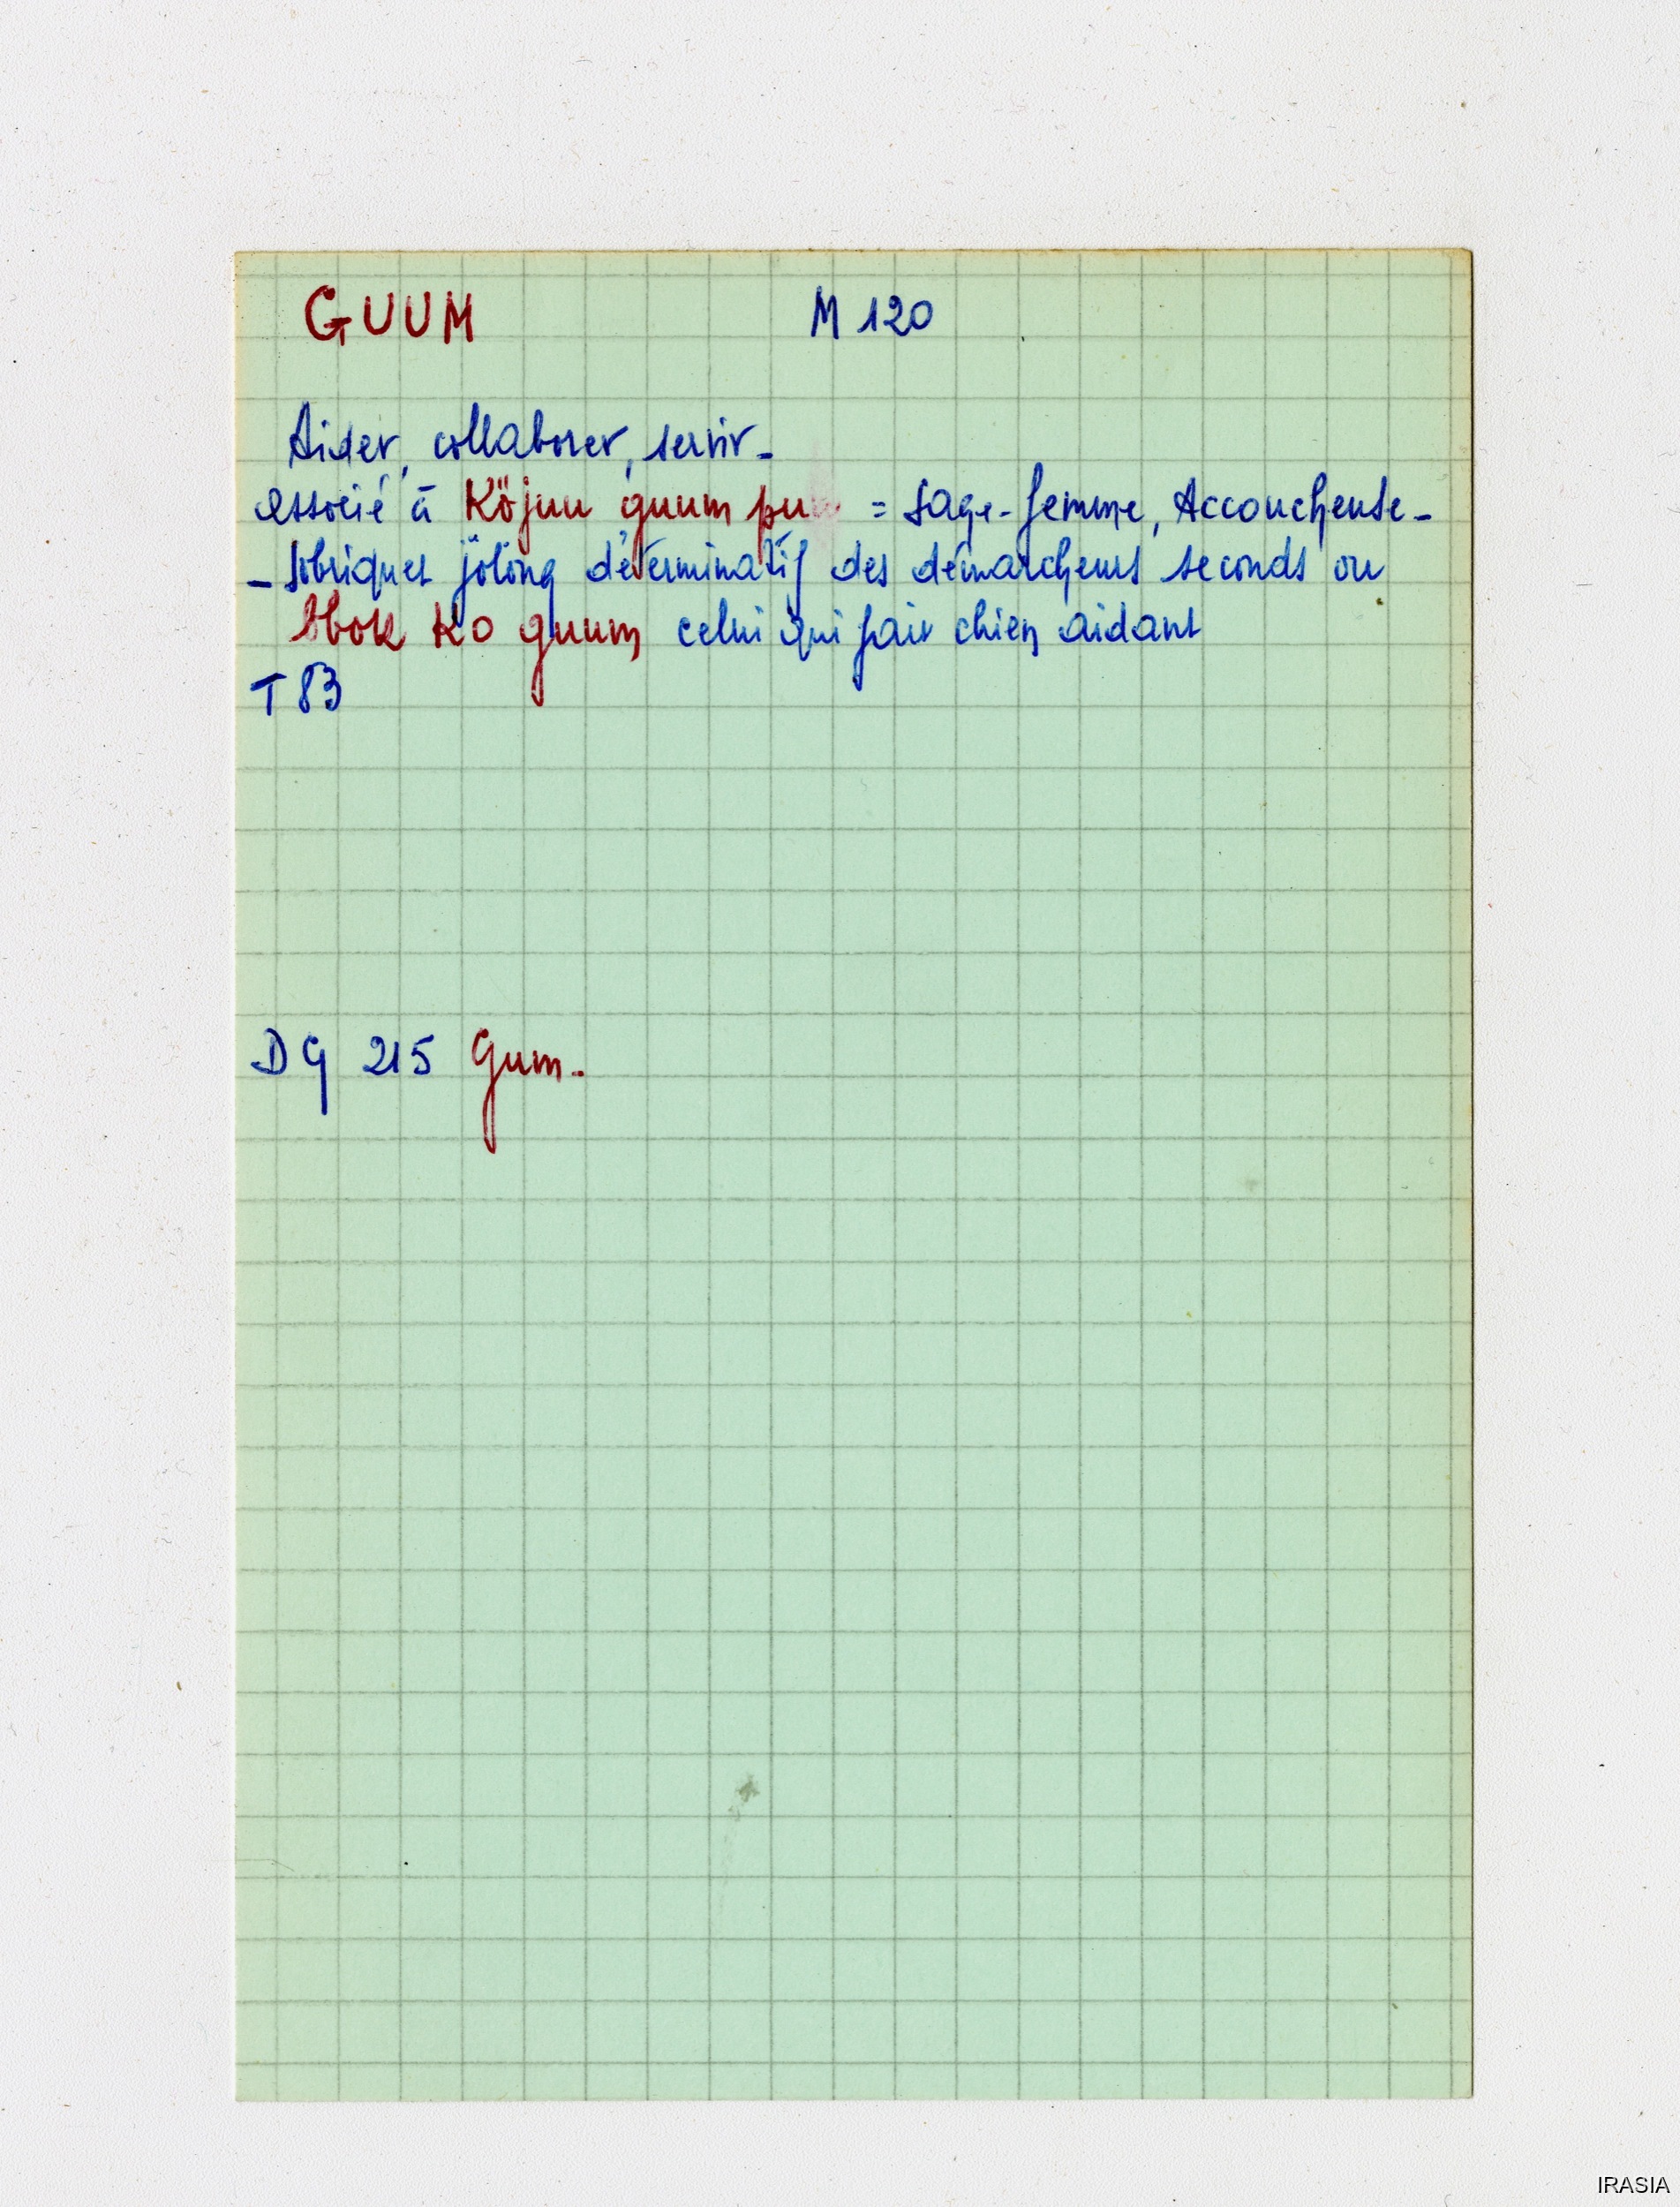 GUUM M 120
Aider, collaborer, servir -
associé à Köjuu guum pu = sage-femme, Accoucheuse -
- sobriquet jölöng déterminatif des démarcheurs seconds ou
bbok ko guum celui qui fait chien aidant
T 83
DG 215 Gum.
IRASIA